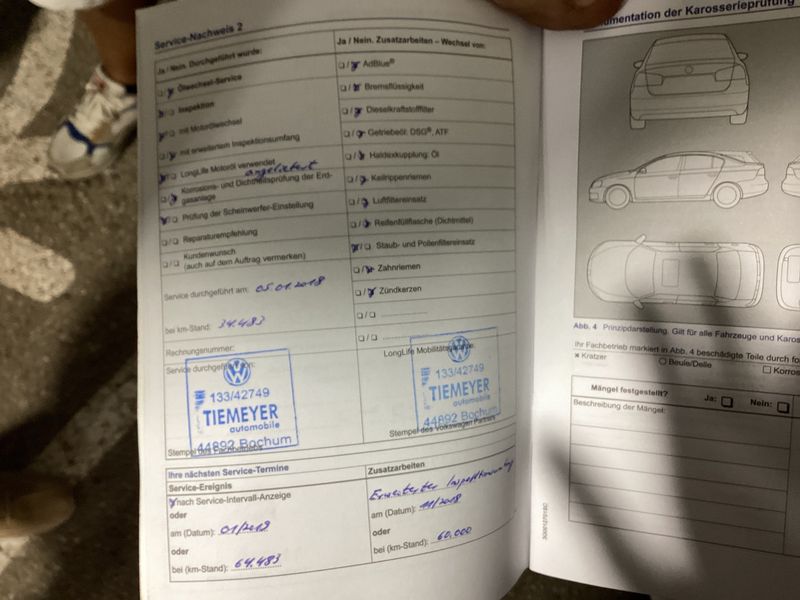 Service-Nachweis 2
Ja / Nein. Durchgeführt wurde:
Ölwechsel-Service
Inspektion
mit Motorölwechsel
mit erweitertem Inspektionsumfang
LongLife Motoröl verwendet
angeliefert
Korrosions- und Dichtheitsprüfung der Erd-
gasanlage
Prüfung der Scheinwerfer-Einstellung
Reparaturempfehlung
Kundenwunsch
(auch auf dem Auftrag vermerken)
Service durchgeführt am: 05.01.2018
bei km-Stand: 34.483
Rechnungsnummer:
Service durchgeführt von:
133/42749
TIEMEYER
automobile
44892 Bochum
Stempel des Fachbetriebs
Ja / Nein. Zusatzarbeiten – Wechsel von:
AdBlue®
Bremsflüssigkeit
Dieselkraftstofffilter
Getriebeöl: DSG®, ATF
Haldexkupplung: Öl
Keilrippenriemen
Luftfiltereinsatz
Reifenfüllflasche (Dichtmittel)
Staub- und Pollenfiltereinsatz
Zahnriemen
Zündkerzen
LongLife Mobilitätsgarantie
133/42749
TIEMEYER
automobile
44892 Bochum
Stempel des Volkswagen Partners
Ihre nächsten Service-Termine
Service-Ereignis
nach Service-Intervall-Anzeige
oder
am (Datum):
oder
bei (km-Stand): 64.483
Zusatzarbeiten
Erweiterter
am (Datum): 11/2018
oder
bei (km-Stand): 60.000
umentation der Karosserieprüfung
Abb. 4 Prinzipdarstellung. Gilt für alle Fahrzeuge und Karos
Ihr Fachbetrieb markiert in Abb. 4 beschädigte Teile durch fo
× Kratzer
Beule/Delle
Korros
Mängel festgestellt? Ja: Nein:
Beschreibung der Mängel: